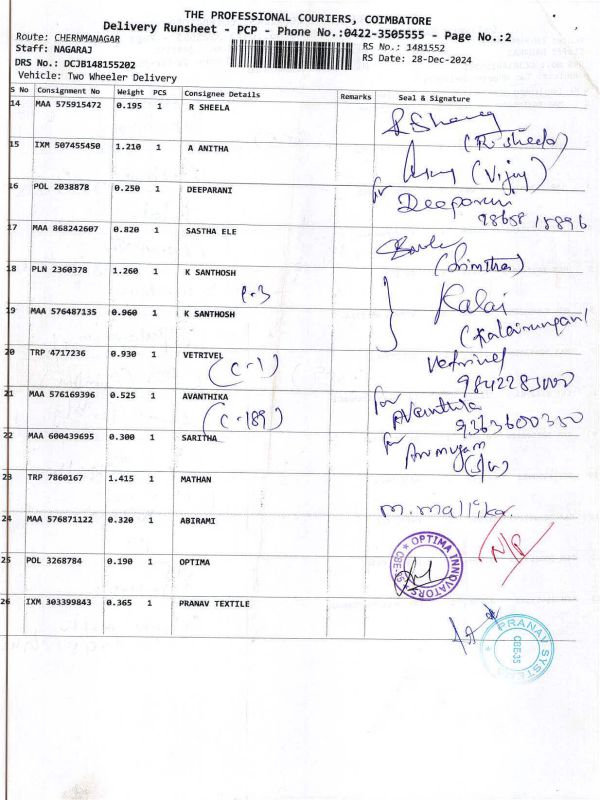 THE PROFESSIONAL COURIERS, COIMBATORE
Delivery Runsheet - PCP - Phone No.:0422-3505555 - Page No.:2
Route: CHERNMANAGAR
RS No.: 1481552
Staff: NAGARAJ
RS Date: 28-Dec-2024
DRS No.: DCJB148155202
Vehicle: Two Wheeler Delivery
S No Consignment No Weight PCS Consignee Details Remarks Seal & Signature
14 MAA 575915472 0.195 1 R SHEELA
(R. sheela)
15 IXM 507455450 1.210 1 A ANITHA
(Vijay)
16 POL 2038878 0.250 1 DEEPARANI
for Deeparani
98658 18896
17 MAA 868242607 0.820 1 SASTHA ELE
18 PLN 2360378 1.260 1 K SANTHOSH
C-3
Kalai
19 MAA 576487135 0.960 1 K SANTHOSH
20 TRP 4717236 0.930 1 VETRIVEL
(C-1)
Vetrivel
21 MAA 576169396 0.525 1 AVANTHIKA
(C-189)
for Avanthika
9363600350
22 MAA 600439695 0.300 1 SARITHA
for
23 TRP 7860167 1.415 1 MATHAN
M. mallika.
24 MAA 576871122 0.320 1 ABIRAMI
N/P
25 POL 3268784 0.190 1 OPTIMA
OPTIMA INNOVATORS
CBE-35
26 IXM 303399843 0.365 1 PRANAV TEXTILE
PRANAV SYSTEMS
CBE-35